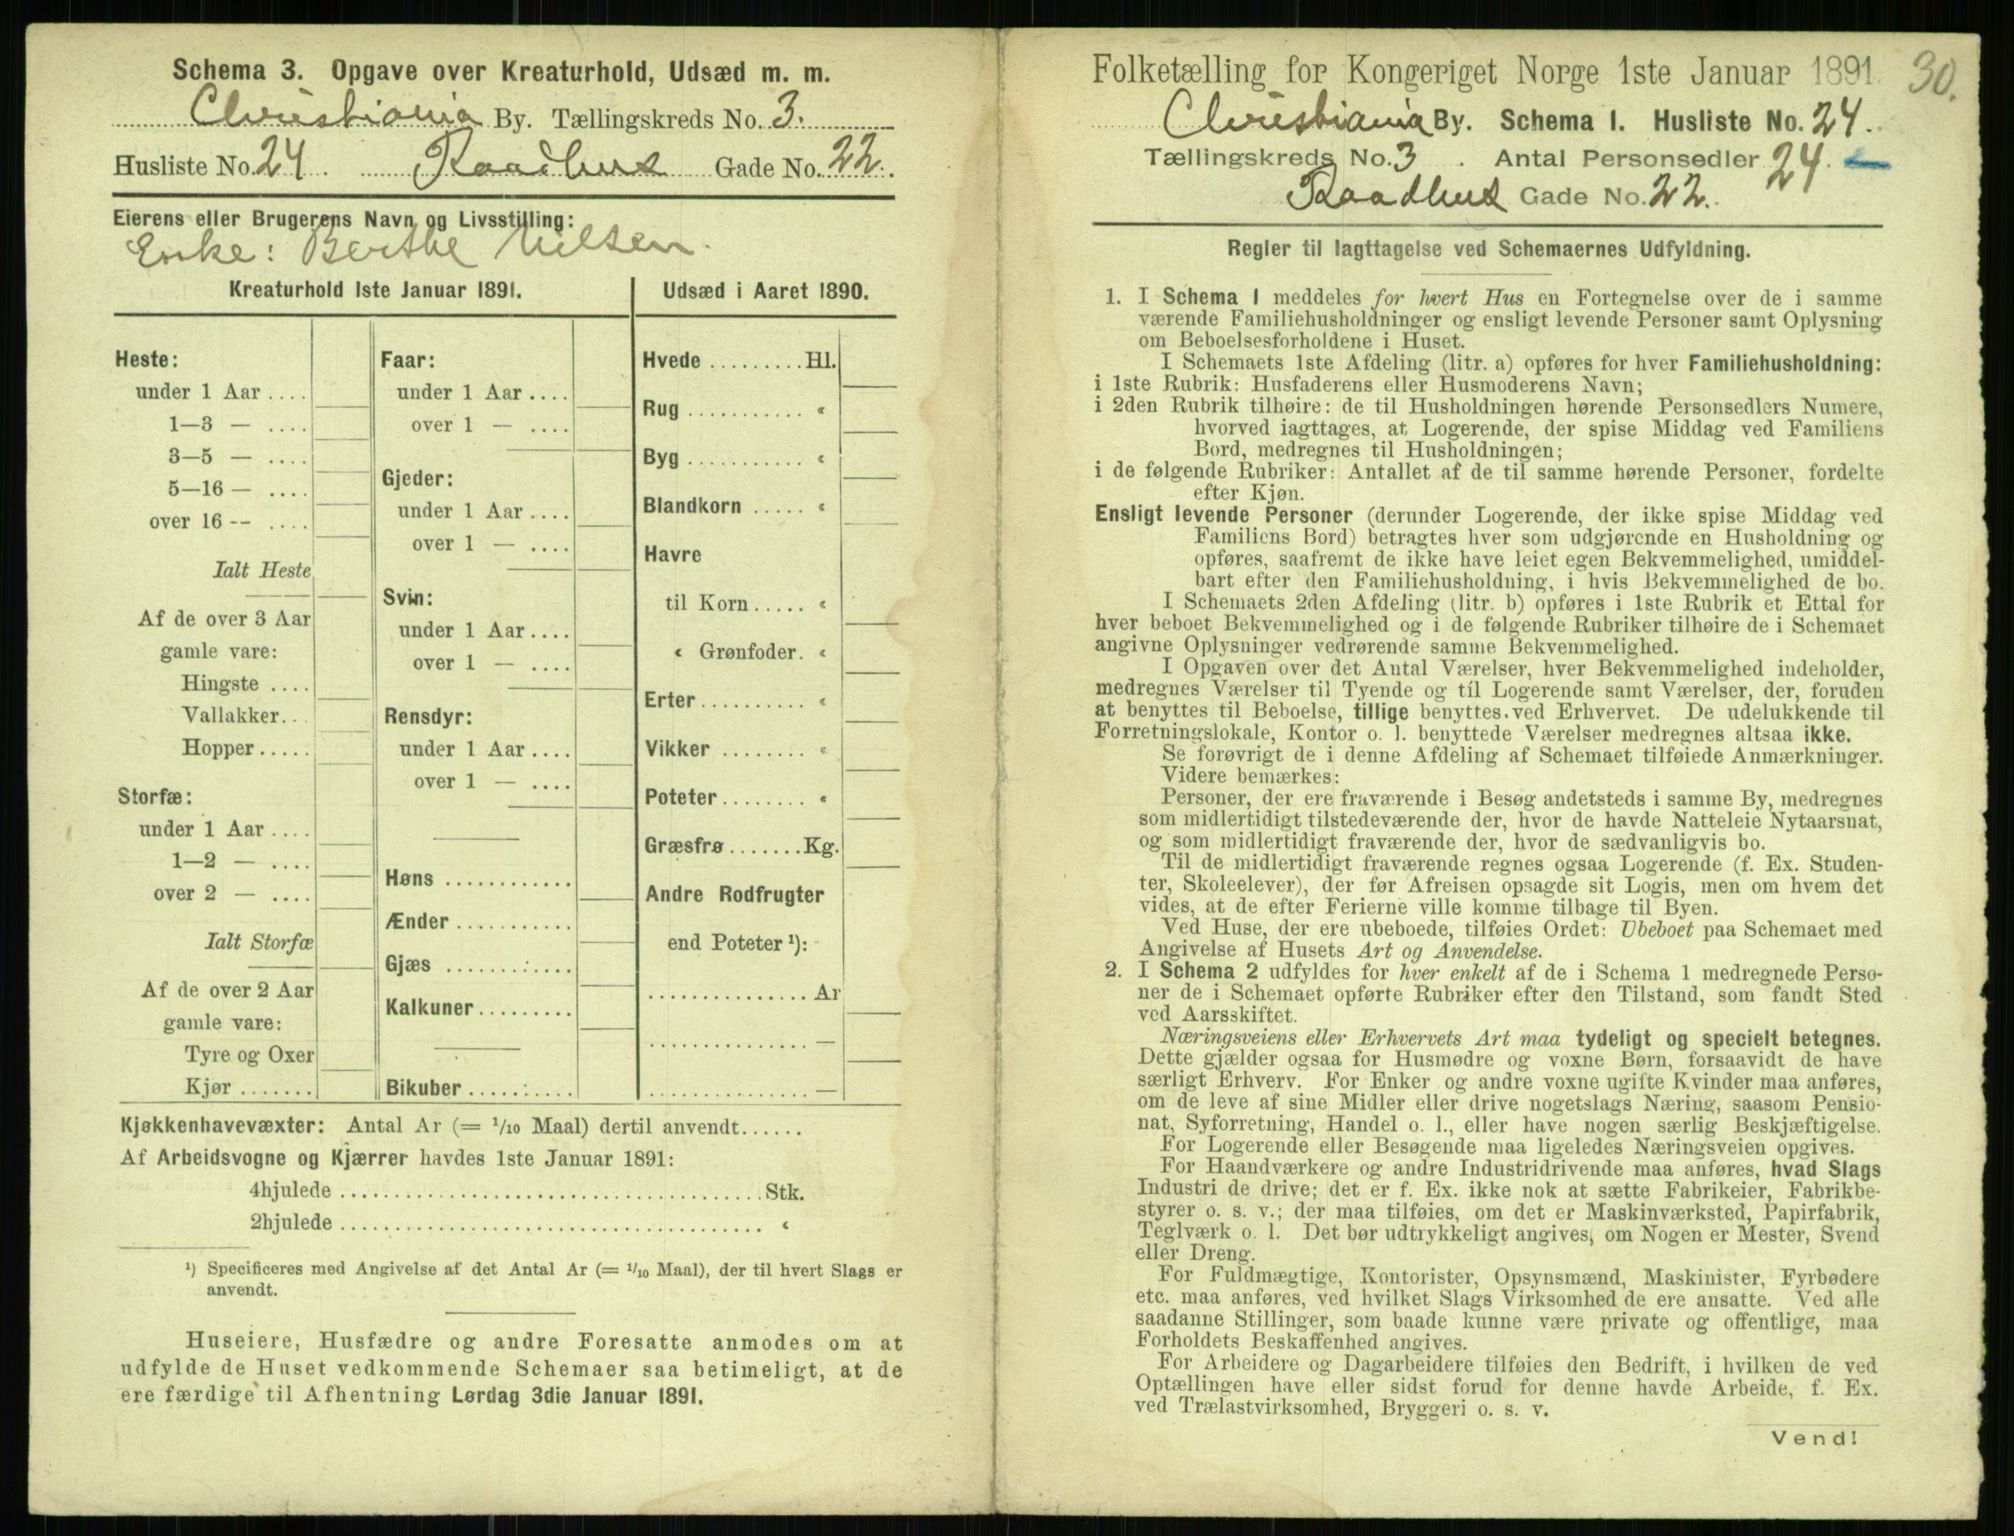 Schema 3. Opgave over Kreaturhold, Udsæd m. m.
Christiania By. Tællingskreds No. 3.
Husliste No. 24. Raadhus Gade No. 22.
Eierens eller Brugerens Navn og Livsstilling:
Enke: Berthe Nilsen.
Kreaturhold 1ste Januar 1891.
Heste:
under 1 Aar ....
1—3 — ....
3—5 — ....
5—16 — ....
over 16 -- ....
Ialt Heste
Af de over 3 Aar
gamle vare:
Hingste ....
Vallakker...
Hopper.....
Storfæ:
under 1 Aar ....
1—2 — ....
over 2 — ....
Ialt Storfæ
Af de over 2 Aar
gamle vare:
Tyre og Oxer
Kjør .......
Faar:
under 1 Aar ....
over 1 — ....
Gjeder:
under 1 Aar ....
over 1 — ....
Svin:
under 1 Aar ....
over 1 — ....
Rensdyr:
under 1 Aar ....
over 1 — ....
Høns ............
Ænder ...........
Gjæs ............
Kalkuner.........
Bikuber ..........
Udsæd i Aaret 1890.
Hvede .........Hl.
Rug ........... «
Byg ........... «
Blandkorn ..... «
Havre
til Korn..... «
« Grønfoder. «
Erter.......... «
Vikker ........ «
Poteter........ «
Græsfrø.......Kg.
Andre Rodfrugter
end Poteter ¹):
...............Ar
............... —
............... —
Kjøkkenhavevæxter: Antal Ar (= 1/10 Maal) dertil anvendt......
Af Arbeidsvogne og Kjærrer havdes 1ste Januar 1891:
4hjulede ........................................Stk.
2hjulede ........................................ «
¹) Specificeres med Angivelse af det Antal Ar (= 1/10 Maal), der til hvert Slags er
anvendt.
Huseiere, Husfædre og andre Foresatte anmodes om at
udfylde de Huset vedkommende Schemaer saa betimeligt, at de
ere færdige til Afhentning Lørdag 3die Januar 1891.
Folketælling for Kongeriget Norge 1ste Januar 1891.
30.
Christiania By. Schema 1. Husliste No. 24.
Tællingskreds No. 3. Antal Personsedler 24.
Raadhus Gade No. 22.
Regler til Iagttagelse ved Schemaernes Udfyldning.
1. I Schema 1 meddeles for hvert Hus en Fortegnelse over de i samme
værende Familiehusholdninger og ensligt levende Personer samt Oplysning
om Beboelsesforholdene i Huset.
I Schemaets 1ste Afdeling (litr. a) opføres for hver Familiehusholdning:
i 1ste Rubrik: Husfaderens eller Husmoderens Navn;
i 2den Rubrik tilhøire: de til Husholdningen hørende Personsedlers Numere,
hvorved iagttages, at Logerende, der spise Middag ved Familiens
Bord, medregnes til Husholdningen;
i de følgende Rubriker: Antallet af de til samme hørende Personer, fordelte
efter Kjøn.
Ensligt levende Personer (derunder Logerende, der ikke spise Middag ved
Familiens Bord) betragtes hver som udgjørende en Husholdning og
opføres, saafremt de ikke have leiet egen Bekvemmelighed, umiddel-
bart efter den Familiehusholdning, i hvis Bekvemmelighed de bo.
I Schemaets 2den Afdeling (litr. b) opføres i 1ste Rubrik et Ettal for
hver beboet Bekvemmelighed og i de følgende Rubriker tilhøire de i Schemaet
angivne Oplysninger vedrørende samme Bekvemmelighed.
I Opgaven over det Antal Værelser, hver Bekvemmelighed indeholder,
medregnes Værelser til Tyende og til Logerende samt Værelser, der, foruden
at benyttes til Beboelse, tillige benyttes ved Erhvervet. De udelukkende til
Forretningslokale, Kontor o. l. benyttede Værelser medregnes altsaa ikke.
Se forøvrigt de i denne Afdeling af Schemaet tilføiede Anmærkninger.
Videre bemærkes:
Personer, der ere fraværende i Besøg andetsteds i samme By, medregnes
som midlertidigt tilstedeværende der, hvor de havde Natteleie Nytaarsnat,
og som midlertidigt fraværende der, hvor de sædvanligvis bo.
Til de midlertidigt fraværende regnes ogsaa Logerende (f. Ex. Studen-
ter, Skoleelever), der før Afreisen opsagde sit Logis, men om hvem det
vides, at de efter Ferierne ville komme tilbage til Byen.
Ved Huse, der ere ubeboede, tilføies Ordet: Ubeboet paa Schemaet med
Angivelse af Husets Art og Anvendelse.
2. I Schema 2 udfyldes for hver enkelt af de i Schema 1 medregnede Perso-
ner de i Schemaet opførte Rubriker efter den Tilstand, som fandt Sted
ved Aarsskiftet.
Næringsveiens eller Erhvervets Art maa tydeligt og specielt betegnes.
Dette gjælder ogsaa for Husmødre og voxne Børn, forsaavidt de have
særligt Erhverv. For Enker og andre voxne ugifte Kvinder maa anføres,
om de leve af sine Midler eller drive nogetslags Næring, saasom Pensio-
nat, Syforretning, Handel o. l., eller have nogen særlig Beskjæftigelse.
For Logerende eller Besøgende maa ligeledes Næringsveien opgives.
For Haandværkere og andre Industridrivende maa anføres, hvad Slags
Industri de drive; det er f. Ex. ikke nok at sætte Fabrikeier, Fabrikbe-
styrer o. s. v.; der maa tilføies, om det er Maskinværksted, Papirfabrik,
Teglværk o. l. Det bør udtrykkeligt angives, om Nogen er Mester, Svend
eller Dreng.
For Fuldmægtige, Kontorister, Opsynsmænd, Maskinister, Fyrbødere
etc. maa anføres, ved hvilket Slags Virksomhed de ere ansatte. Ved alle
saadanne Stillinger, som baade kunne være private og offentlige, maa
Forholdets Beskaffenhed angives.
For Arbeidere og Dagarbeidere tilføies den Bedrift, i hvilken de ved
Optællingen have eller sidst forud for denne havde Arbeide, f. Ex.
ved Trælastvirksomhed, Bryggeri o. s. v.
Vend!